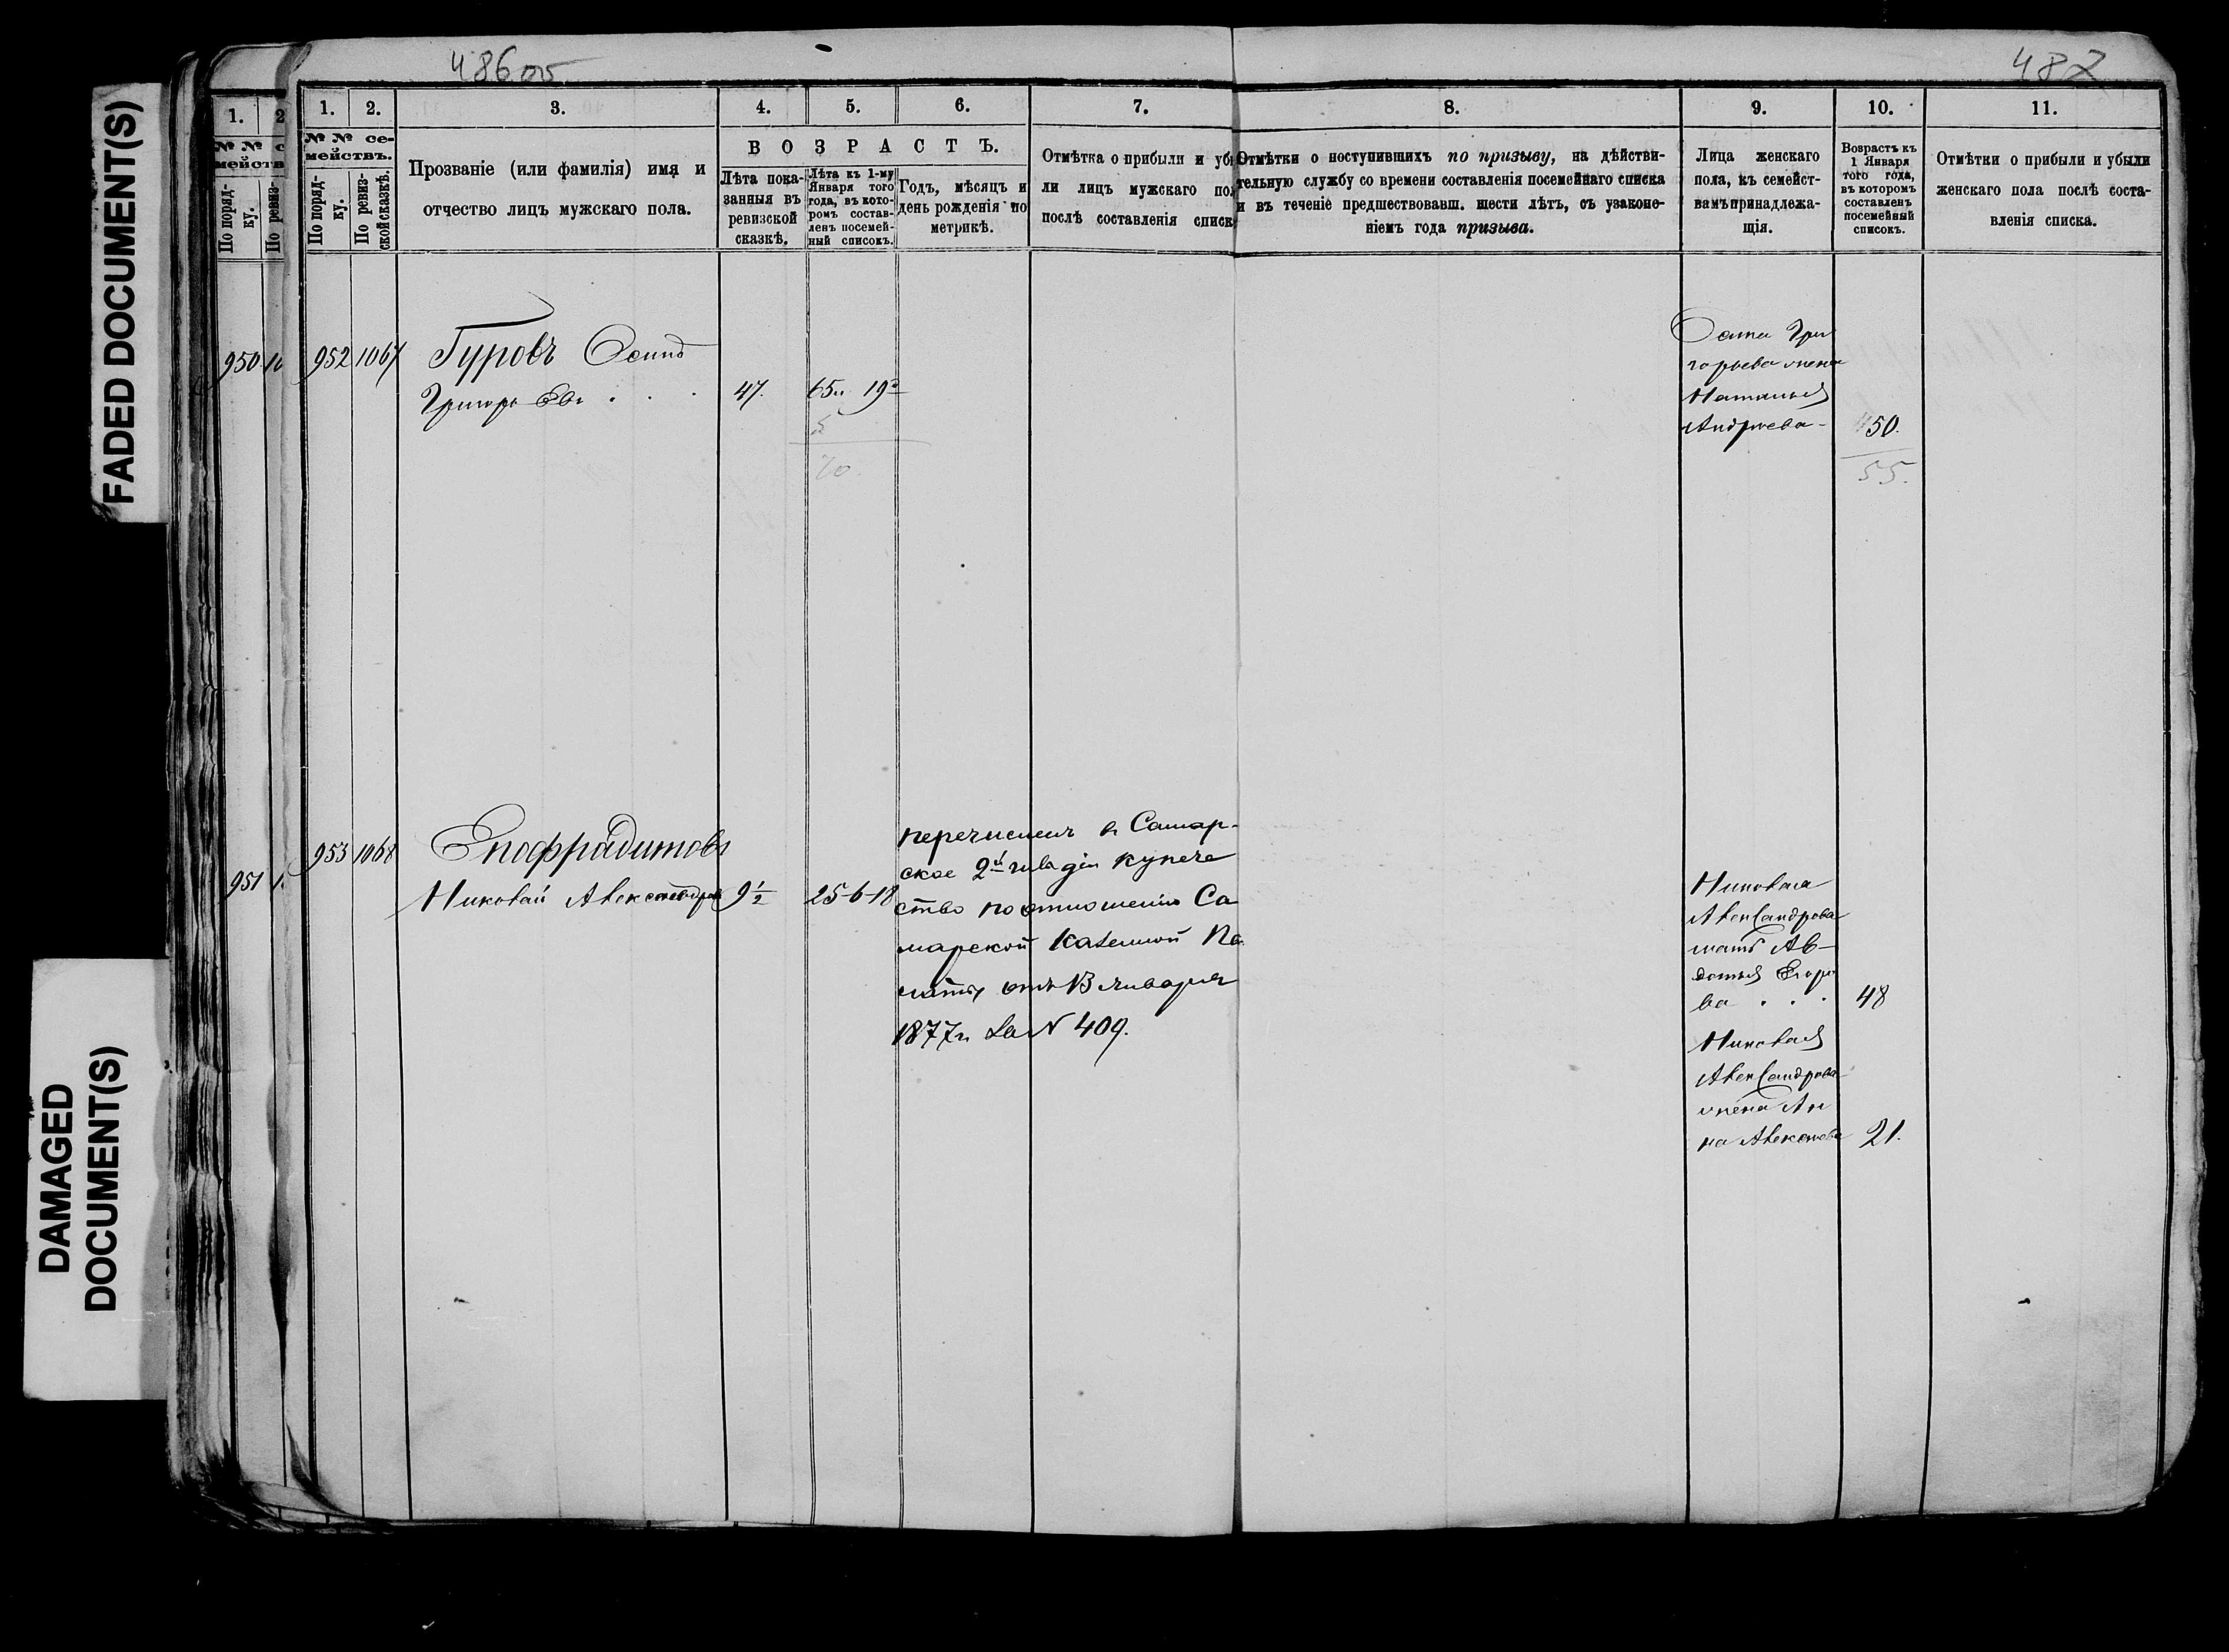 FADED DOCUMENT(S)
DAMAGED
DOCUMENT(S)
486об
487
1. 2
№ № с
мейств
По поряд-
ку.
По ревиз-
950 10
951 1
1. 2. 3. 4. 5. 6. 7. 8. 9. 10. 11.
№ № се-
мействъ.
По поряд-
ку.
По ревиз-
ской сказкѣ.
Прозваніе (или фамилія) имя и
отчество лицъ мужскаго пола.
ВОЗРАСТЪ.
Лѣта пока-
занныя въ
ревизской
сказкѣ.
Лѣта къ 1-му
Января того
года, въ кото-
ромъ состав-
ленъ посемей-
ный списокъ.
Годъ, мѣсяцъ и
день рожденія по
метрикѣ.
Отмѣтка о прибыли и убы
ли лицъ мужскаго пол
послѣ составленія списк
Отмѣтки о поступившихъ по призыву, на дѣйстви-
тельную службу со времени составленія посемейнаго списка
и въ теченіе предшествовавш. шести лѣтъ, съ узаконе-
ніемъ года призыва.
Лица женскаго
пола, къ семейст-
вамъ принадлежа-
щія.
Возрастъ къ
1 Января
того года,
въ которомъ
составленъ
посемейный
списокъ.
Отмѣтки о прибыли и убыли
женскаго пола послѣ соста-
вленія списка.
952 1067 Гуровъ Осипъ
Григорьевъ . . . 47. 65
5
70.
Осипа Гри
горьева жена
Наталья
Андреева- 50.
55.
953 1068 Епафрадитовъ
Николай Александров 9½ 25-6-18
перечисленъ в Самар-
ское 2й гильдіи купече
ство по отношенію Са
марской Казенной Па
латы отъ 13 Января
1877г. за N 409.
Николая
Александрова
мать Ав-
дотья Егоро
ва . . . 48
Николая
Александрова
жена Ан
на Алексеева 21.